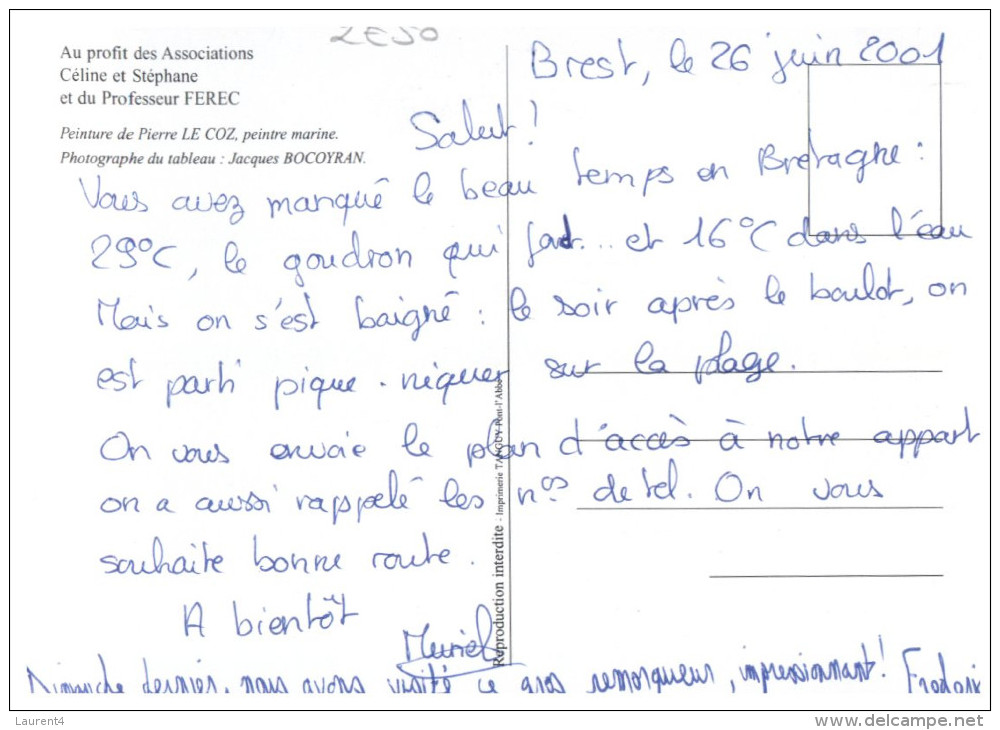 2E50
Au profit des Associations
Céline et Stéphane
et du Professeur FEREC
Peinture de Pierre LE COZ, peintre marine.
Photographe du tableau : Jacques BOCOYRAN.
Brest, le 26 juin 2001
Salut !
Vous avez manqué le beau temps en Bretagne :
29°C, le goudron qui fond... et 16°C dans l'eau
Mais on s'est baigné : le soir après le boulot, on
est parti pique-niquer sur la plage.
On vous envoie le plan d'accès à notre appart
on a aussi rappelé les nos de tel. On vous
souhaite bonne route.
A bientôt
Muriel
Dimanche dernier, nous avons visité ce gros remorqueur, impressionnant !
Reproduction interdite - Imprimerie TANGUY Pont-l'Abbé
Laurent4
delcampe.net